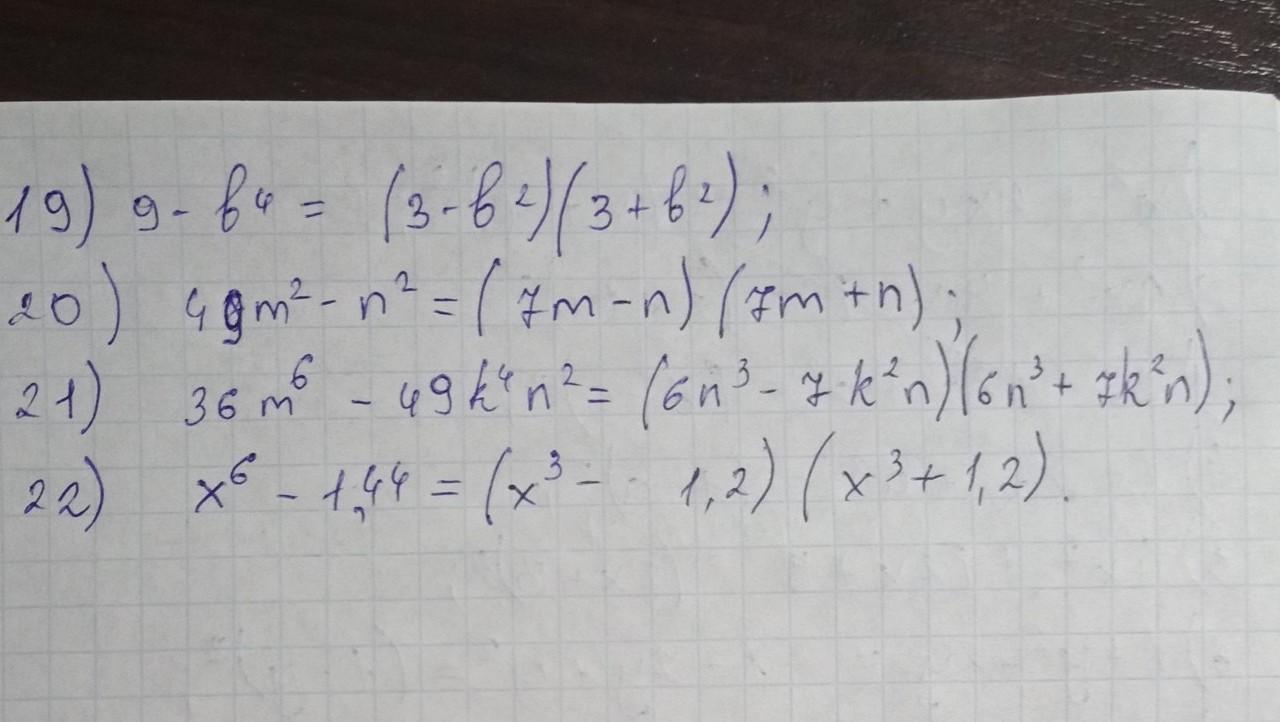 19) 9 - b⁴ = (3 - b²)(3 + b²);
20) 49m² - n² = (7m - n) (7m + n);
21) 36m⁶ - 49k⁴n² = (6n³ - 7k²n)(6n³ + 7k²n);
22) x⁶ - 1,44 = (x³ - 1,2) (x³ + 1,2).